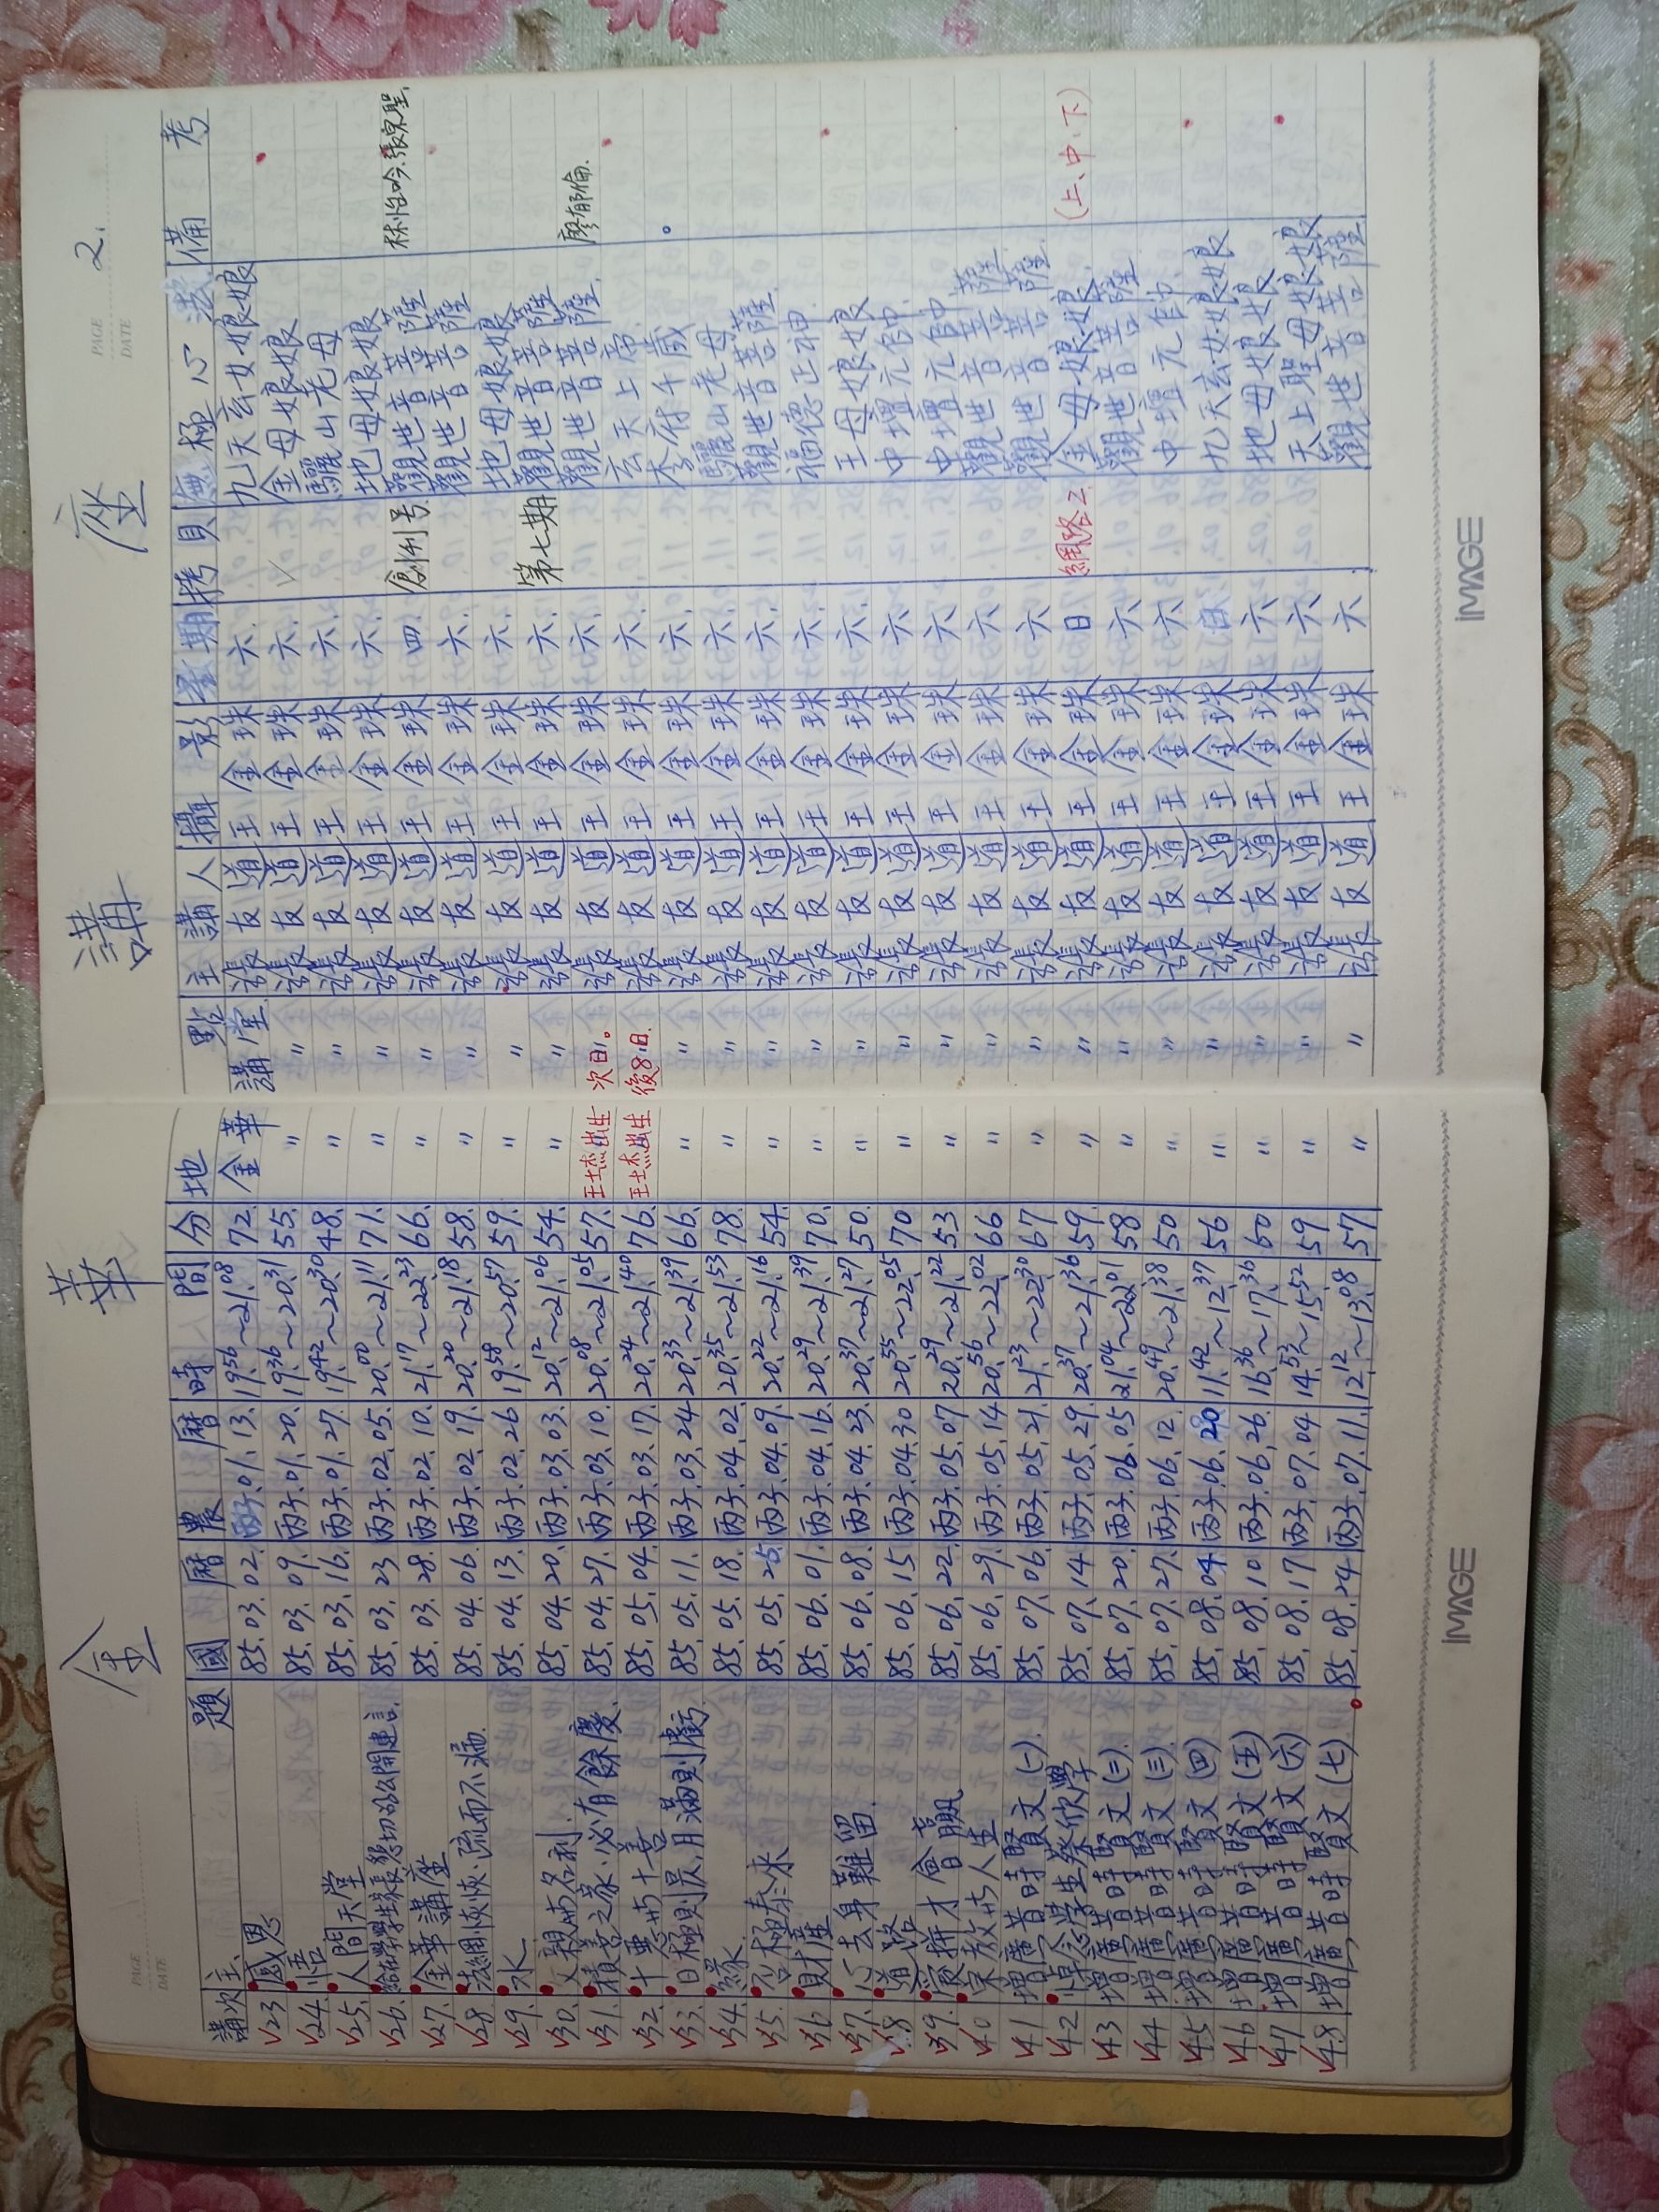 金 華 講 座
PAGE
DATE
PAGE 2.
DATE
講次 主 題 國 曆 農 曆 時 間 分 地 點 主 講 人 攝 影 星期 拷貝 無極心 備 考
23 感恩 85.03.02. 丙子.01.13. 19.56~21.08 72. 金華講堂 友(道) 王金珠 六. 九天玄女娘娘
24. 悟 85.03.09. 丙子.01.20. 19.36~20.31 55. 〃 〃 友(道) 王金珠 六. ✓ 金母娘娘
25. 人間天堂 85.03.16. 丙子.01.27. 19.42~20.30 48. 〃 〃 友(道) 王金珠 六. 驪山老母
26. 給在學學生家長懇切的公開建言. 85.03.23 丙子.02.05. 20.00~21.11 71. 〃 〃 友(道) 王金珠 六. 地母娘娘
27. 金華講座 85.03.28. 丙子.02.10. 21.17~22.23 66. 〃 〃 友(道) 王金珠 四. 創刊号 觀世音菩薩 林怡吟.張泉聖.
28 法網恢恢.疏而不漏. 85.04.06. 丙子.02.19. 20.20~21.18 58. 〃 〃 友(道) 王金珠 六. 觀世音菩薩
29. 水 85.04.13. 丙子.02.26 19.58~20.57 59. 〃 〃 友(道) 王金珠 六. 地母娘娘
30. 父親的名利. 85.04.20. 丙子.03.03. 20.12~21.06 54. 〃 〃 友(道) 王金珠 六. 第七期 觀世音菩薩
31. 積善之家.必有餘慶. 85.04.27. 丙子.03.10. 20.08~21.05 57. 王士杰出生 次日. 友(道) 王金珠 六. 觀世音菩薩. 廖郁倫.
32. 十惡的十善 85.05.04. 丙子.03.17. 20.24~21.40 76. 王士杰出生 後8日. 友(道) 王金珠 六. 玄天上帝
33. 日極則昃,月滿則虧. 85.05.11. 丙子.03.24 20.33~21.39 66. 〃 〃 友(道) 王金珠 六. 李府千歲
34. 緣. 85.05.18. 丙子.04.02. 20.35~21.53 78. 〃 〃 友(道) 王金珠 六. 驪山老母
35. 否極泰來 85.05.25. 丙子.04.09. 20.22~21.16 54. 〃 〃 友(道) 王金珠 六. 觀世音菩薩.
36 財產 85.06.01. 丙子.04.16. 20.29~21.39 70. 〃 〃 友(道) 王金珠 六. 福德正神.
37. 心去身難留. 85.06.08. 丙子.04.23. 20.37~21.27 50. 〃 〃 友(道) 王金珠 六. 王母娘娘
38. 道路 85.06.15 丙子.04.30 20.55~22.05 70 〃 〃 友(道) 王金珠 六 中壇元帥.
39. 愛拼才會贏 85.06.22. 丙子.05.07 20.29~21.22 53 〃 〃 友(道) 王金珠 六 中壇元帥
40 宗教的人生 85.06.29. 丙子.05.14 20.56~22.02 66 〃 〃 友(道) 王金珠 六 觀世音菩薩
41 增廣昔時賢文(一). 85.07.06. 丙子.05.21. 21.23~22.30 67 〃 〃 友(道) 王金珠 六 觀世音菩薩
42 悼念學生蔡欣學 85.07.14 丙子.05.29. 20.37~21.36 59. 〃 〃 友(道) 王金珠 日 網路2 金母娘娘 (上、中、下)
43 增廣昔時賢文(二). 85.07.20. 丙子.06.05 21.04~22.01 58 〃 〃 友(道) 王金珠 六 觀世音菩薩
44 增廣昔時賢文(三). 85.07.27. 丙子.06.12. 20.49~21.38 50 〃 〃 友(道) 王金珠 六 中壇元帥.
45 增廣昔時賢文(四) 85.08.04 丙子.06.20 11.42~12.37 56 〃 〃 友(道) 王金珠 日 九天玄女娘娘
46 增廣昔時賢文(五) 85.08.10 丙子.06.26. 16.36~17.36 60 〃 〃 友(道) 王金珠 六 地母娘娘
47 增廣昔時賢文(六) 85.08.17 丙子.07.04 14.53~15.52 59 〃 〃 友(道) 王金珠 六 天上聖母娘娘
48 增廣昔時賢文(七) 85.08.24 丙子.07.11. 12.12~13.08 57 〃 〃 友(道) 王金珠 六 觀世音菩薩
IMAGE
IMAGE